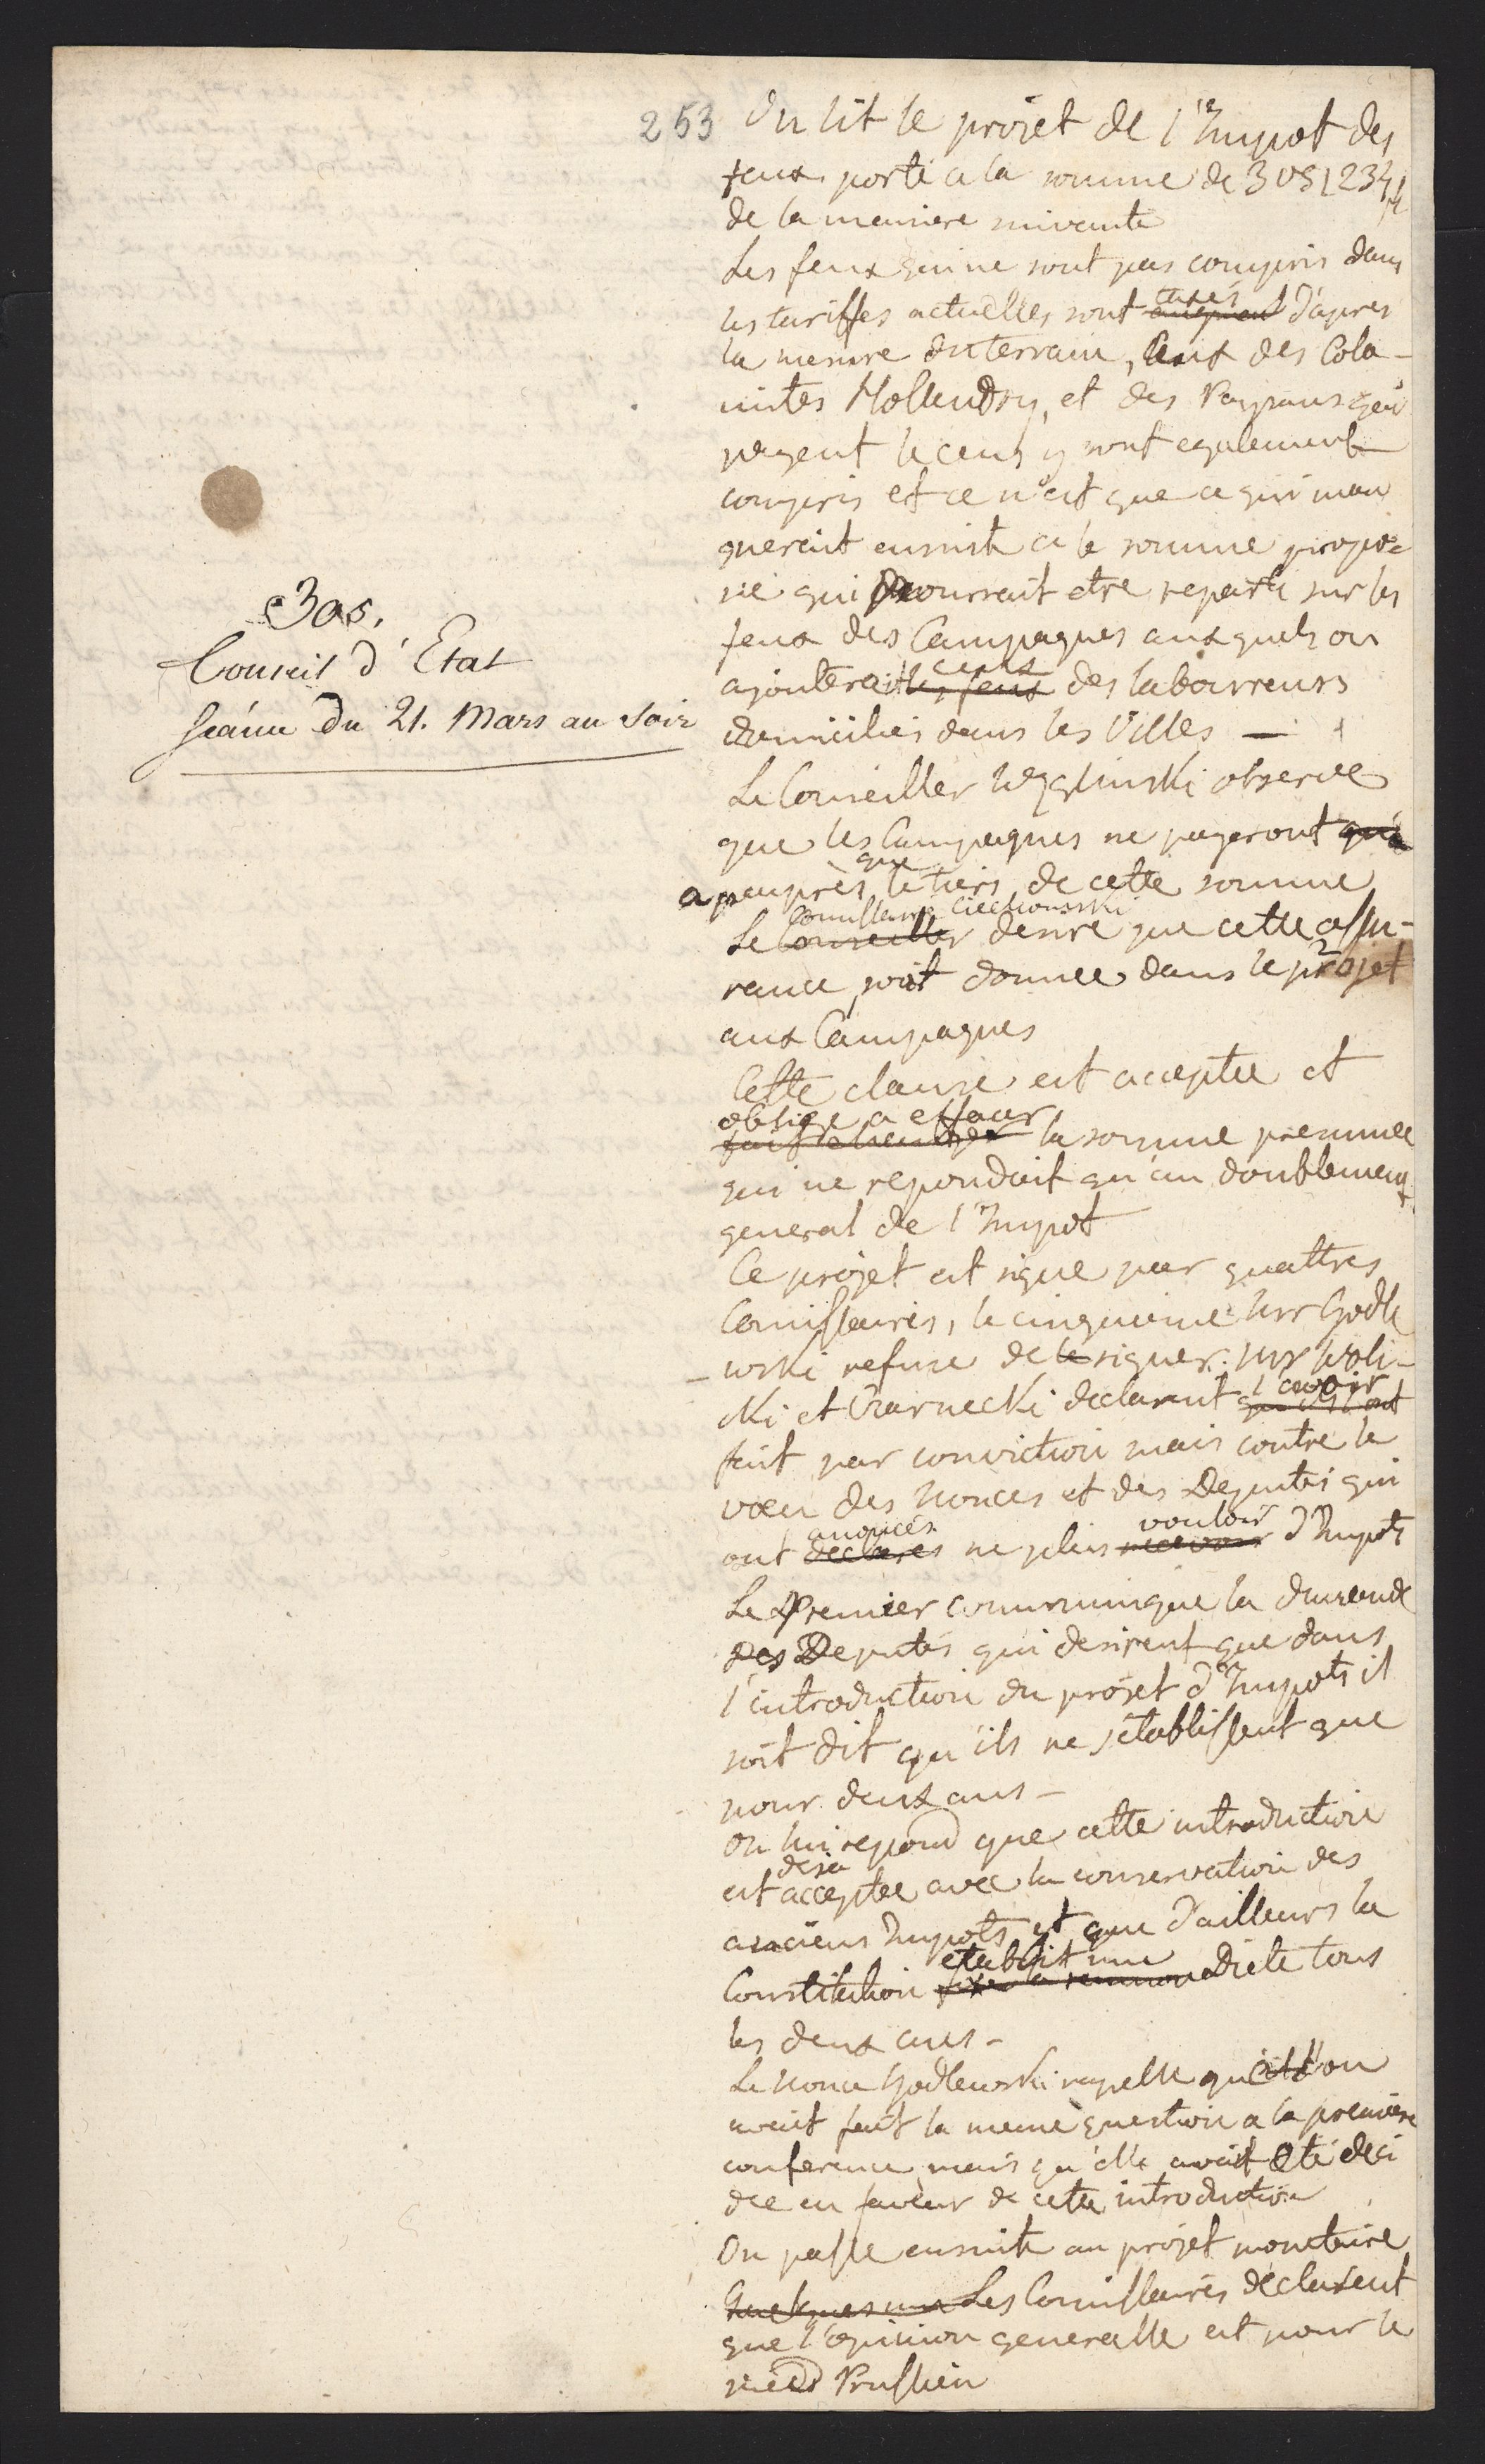 253
305.
Conseil d'Etat
Seánce du 21. Mars au Soir
On lit le projet de l'Impot des
feux porté a la somme de
de la maniere suivante
Les feux qui ne sont pas compris dans
les tariffes actuelles sont taxés d'apres
la mesure du terrain, des Colo-
nistes Hollendry, et des Paysans qui
payent le cens y sont egalement
compris et ce n'est que ce qui man
querait ensuite a la somme propo-
sée qui pourrait etre reparti sur les
feux des Campagnes auxquels on
ajouterait les feux des laboureurs
domicilies dans les Villes —
Le Conseiller Węgliński observe
que les Campagnes ne payeront qu'a
a peuprès que le tiers de cette somme
Le Conseiller Comissaire Ciechomski desire que cette assu-
rance soit donnee dans le projet
aux Campagnes
Cette clause est acceptee et
oblige a effacer la somme presumee
qui ne repondait qu'au doublement
general de l'Impot
Ce projet est signé par quattres
Comissaires, le cinquieme Mr Godle
-wski refuse de le signer. Mrs Woli-
cki et Czarnecki declarent l'avoir
fait par conviction mais contre le
voeu des Nonces et des Deputés qui
ont declarés anoncés ne plus recevoir vouloir d'Impots
Le Premier communique la demande
des Deputés qui desirent que dans
l'introduction du projet d'Impots il
soit dit qu'ils ne s'etablissent que
pour deux ans -
On lui repond que cette introduction
est deja acceptee avec la conservation des
anciens Impots et que d'ailleurs la
Constitution etablit une fixe la reunion Diete tous
les deux ans -
Le Nonce Godlewski rapelle qu'on
avait fait la meme question a la premiere
conference mais qu'elle avait été deci
dee en faveur de cette introduction
On passe ensuite au projet monetaire
Quelques uns Les Comissaires declarent
que l'opinion generalle est pour le
pied Prussien